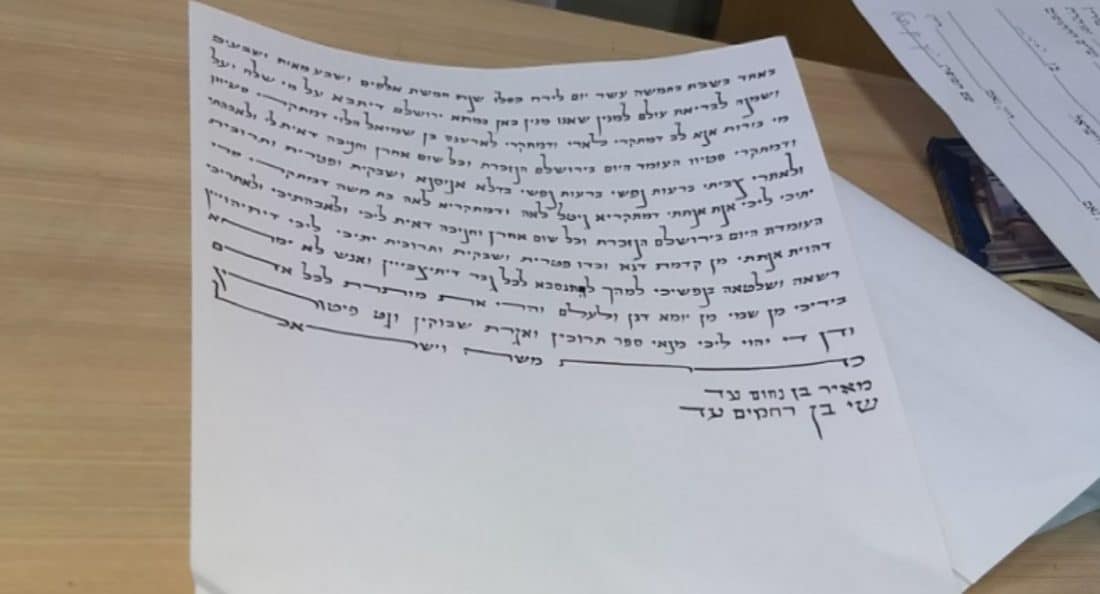 באחד בשבת בחמשה עשר יום לירח כסלו שנת חמשת אלפים ושבע מאות ושבעים
ושמנה לבריאת עולם למנין שאנו מנין כאן במתא ירושלם דיתבא על מי שלח ועל
מי בורות אנא לב דמתקרי לארי ודמתקרי לארענס בן שמואל הלוי דמתקרי
ודמתקרי סטיוו העומד היום בירושלם הנזכרת וכל שום אחרן וחניכה דאית לי ולאבהתי
ולאתרי צביתי ברעות נפשי ברעות נפשי בדלא אניסנא ושבקית ופטרית ותרוכית
יתיכי ליכי אנת אנתתי דמתקריא ניטל לאה ודמתקריא לאה בת משה דמתקרי מרי
העומדת היום בירושלם הנזכרת וכל שום אחרן וחניכה דאית ליכי ולאבהתיכי ולאתריכי
דהוית אנתתי מן קדמת דנא וכדו פטרית ושבקית ותרוכית יתיכי ליכי דיתיהוייין
רשאה ושלטאה בנפשיכי למהך להתנסבא לכל גבר דיתיצבייין ואנש לא ימחא
בידיכי מן שמי מן יומא דנן ולעלם והרי את מותרת לכל אדם
ודן די יהוי ליכי מנאי ספר תרוכין ואגרת שבוקין וגט פיטורין
כדת משה וישראל
מאיר בן נחום עד
שי בן רחמים עד